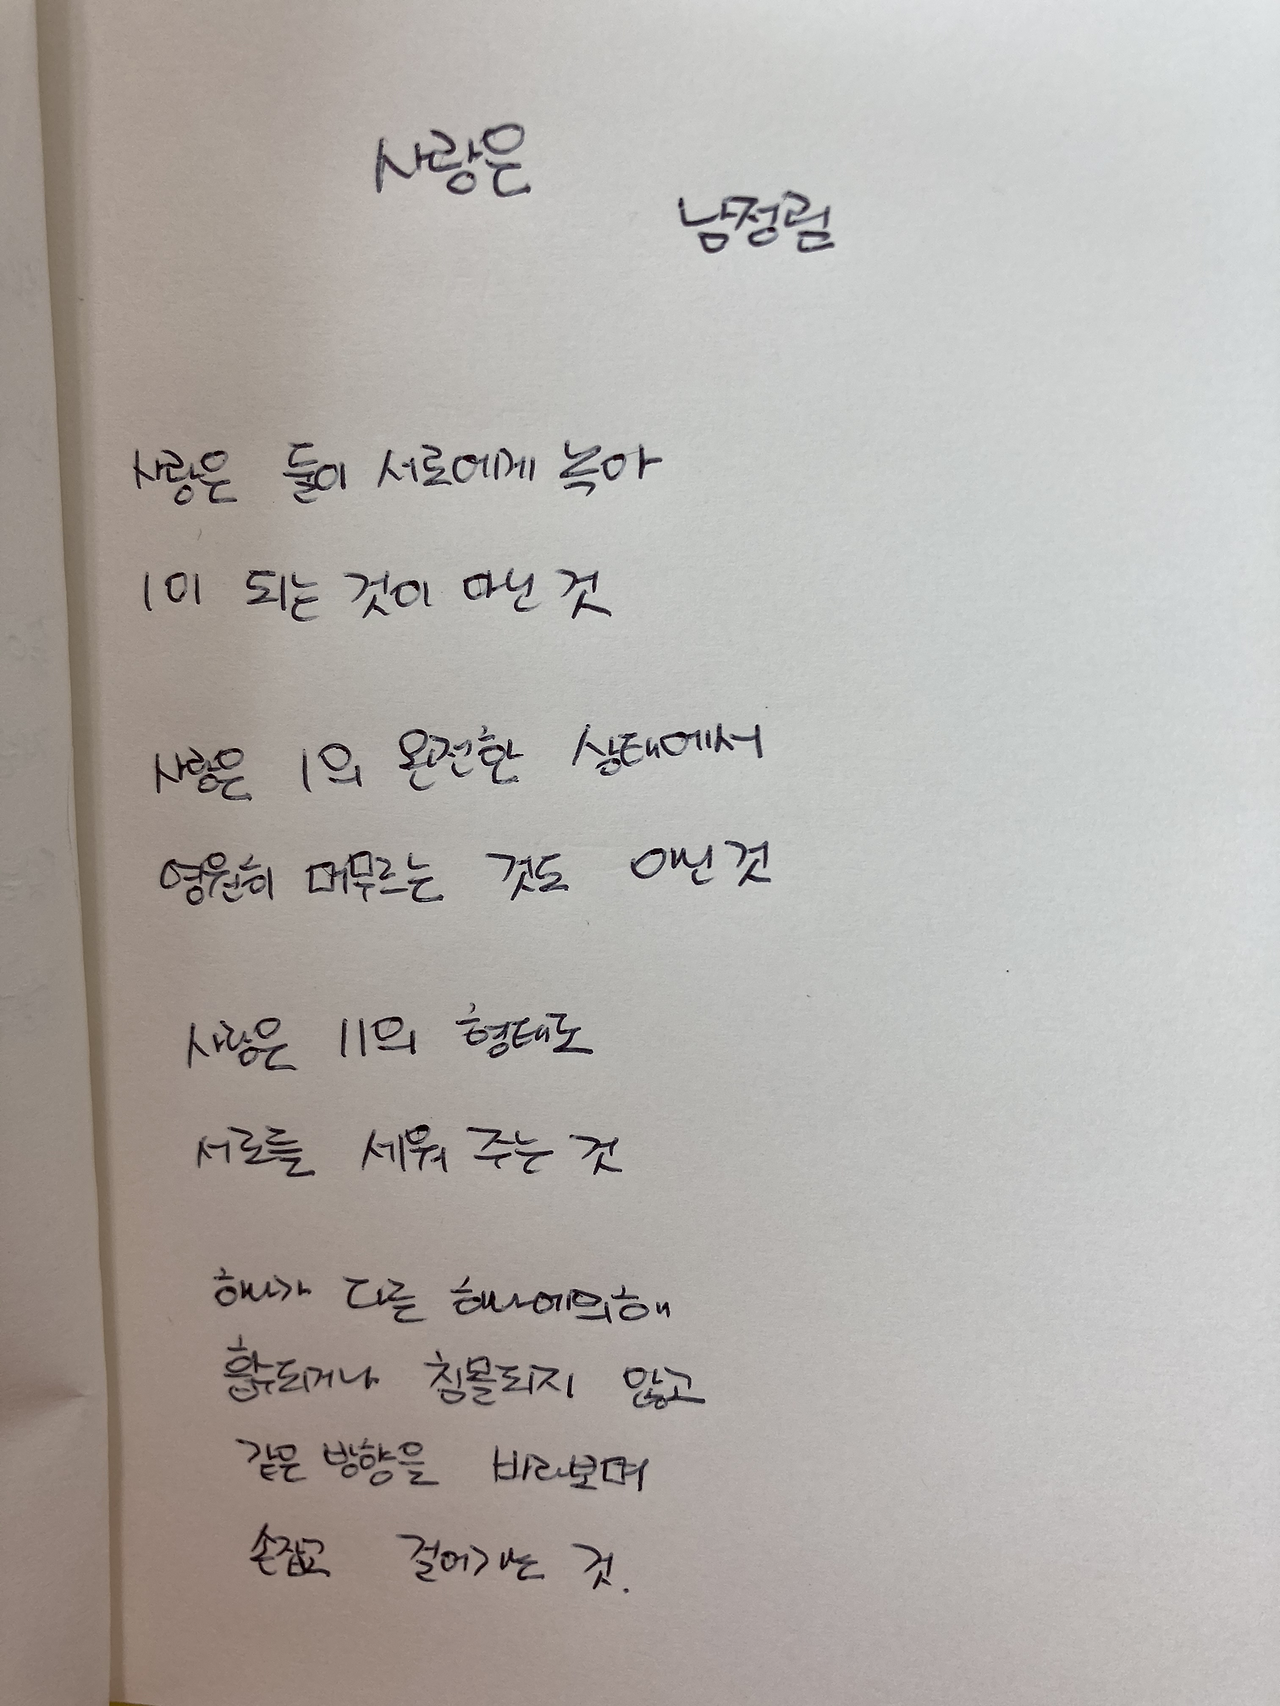 사랑은
남정림
사랑은 둘이 서로에게 녹아
1이 되는 것이 아닌 것
사랑은 1의 온전한 상태에서
영원히 머무르는 것도 아닌 것
사랑은 11의 형태로
서로를 세워 주는 것
하나가 다른 하나에의해
흡수되거나 침몰되지 않고
같은 방향을 바라보며
손잡고 걸어가는 것.